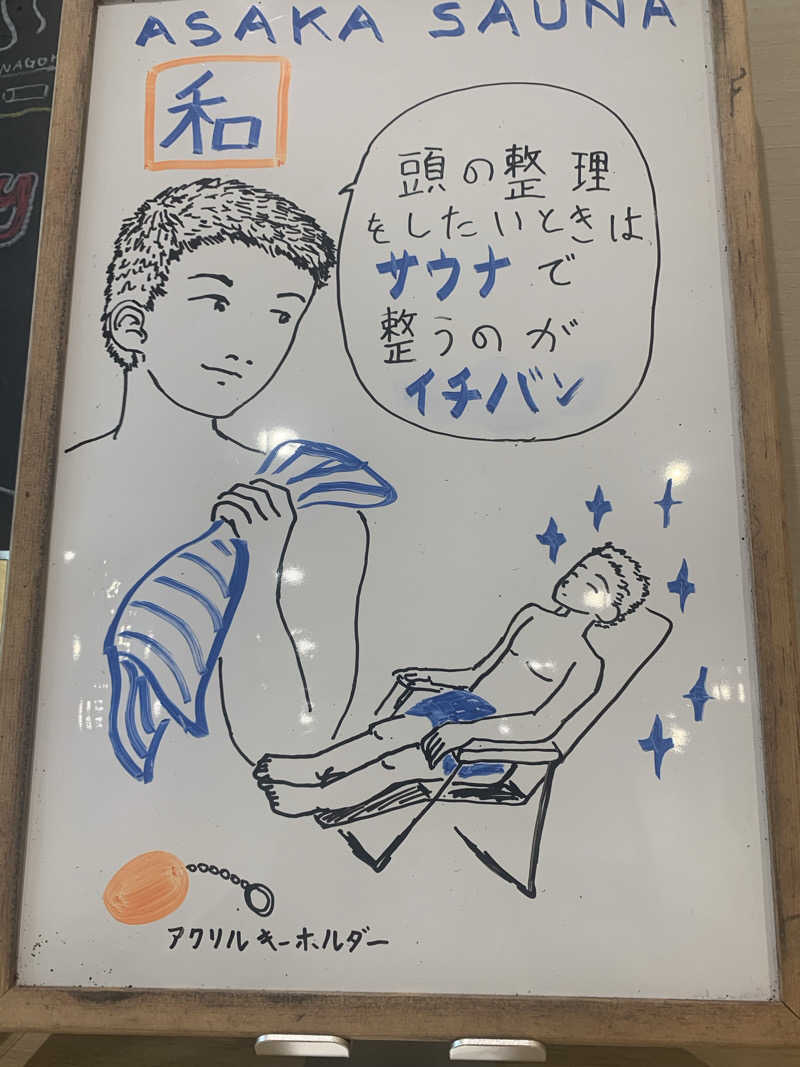 ASAKA SAUNA
和
頭の整理
をしたいときは
サウナで
整うのが
イチバン
アクリルキーホルダー